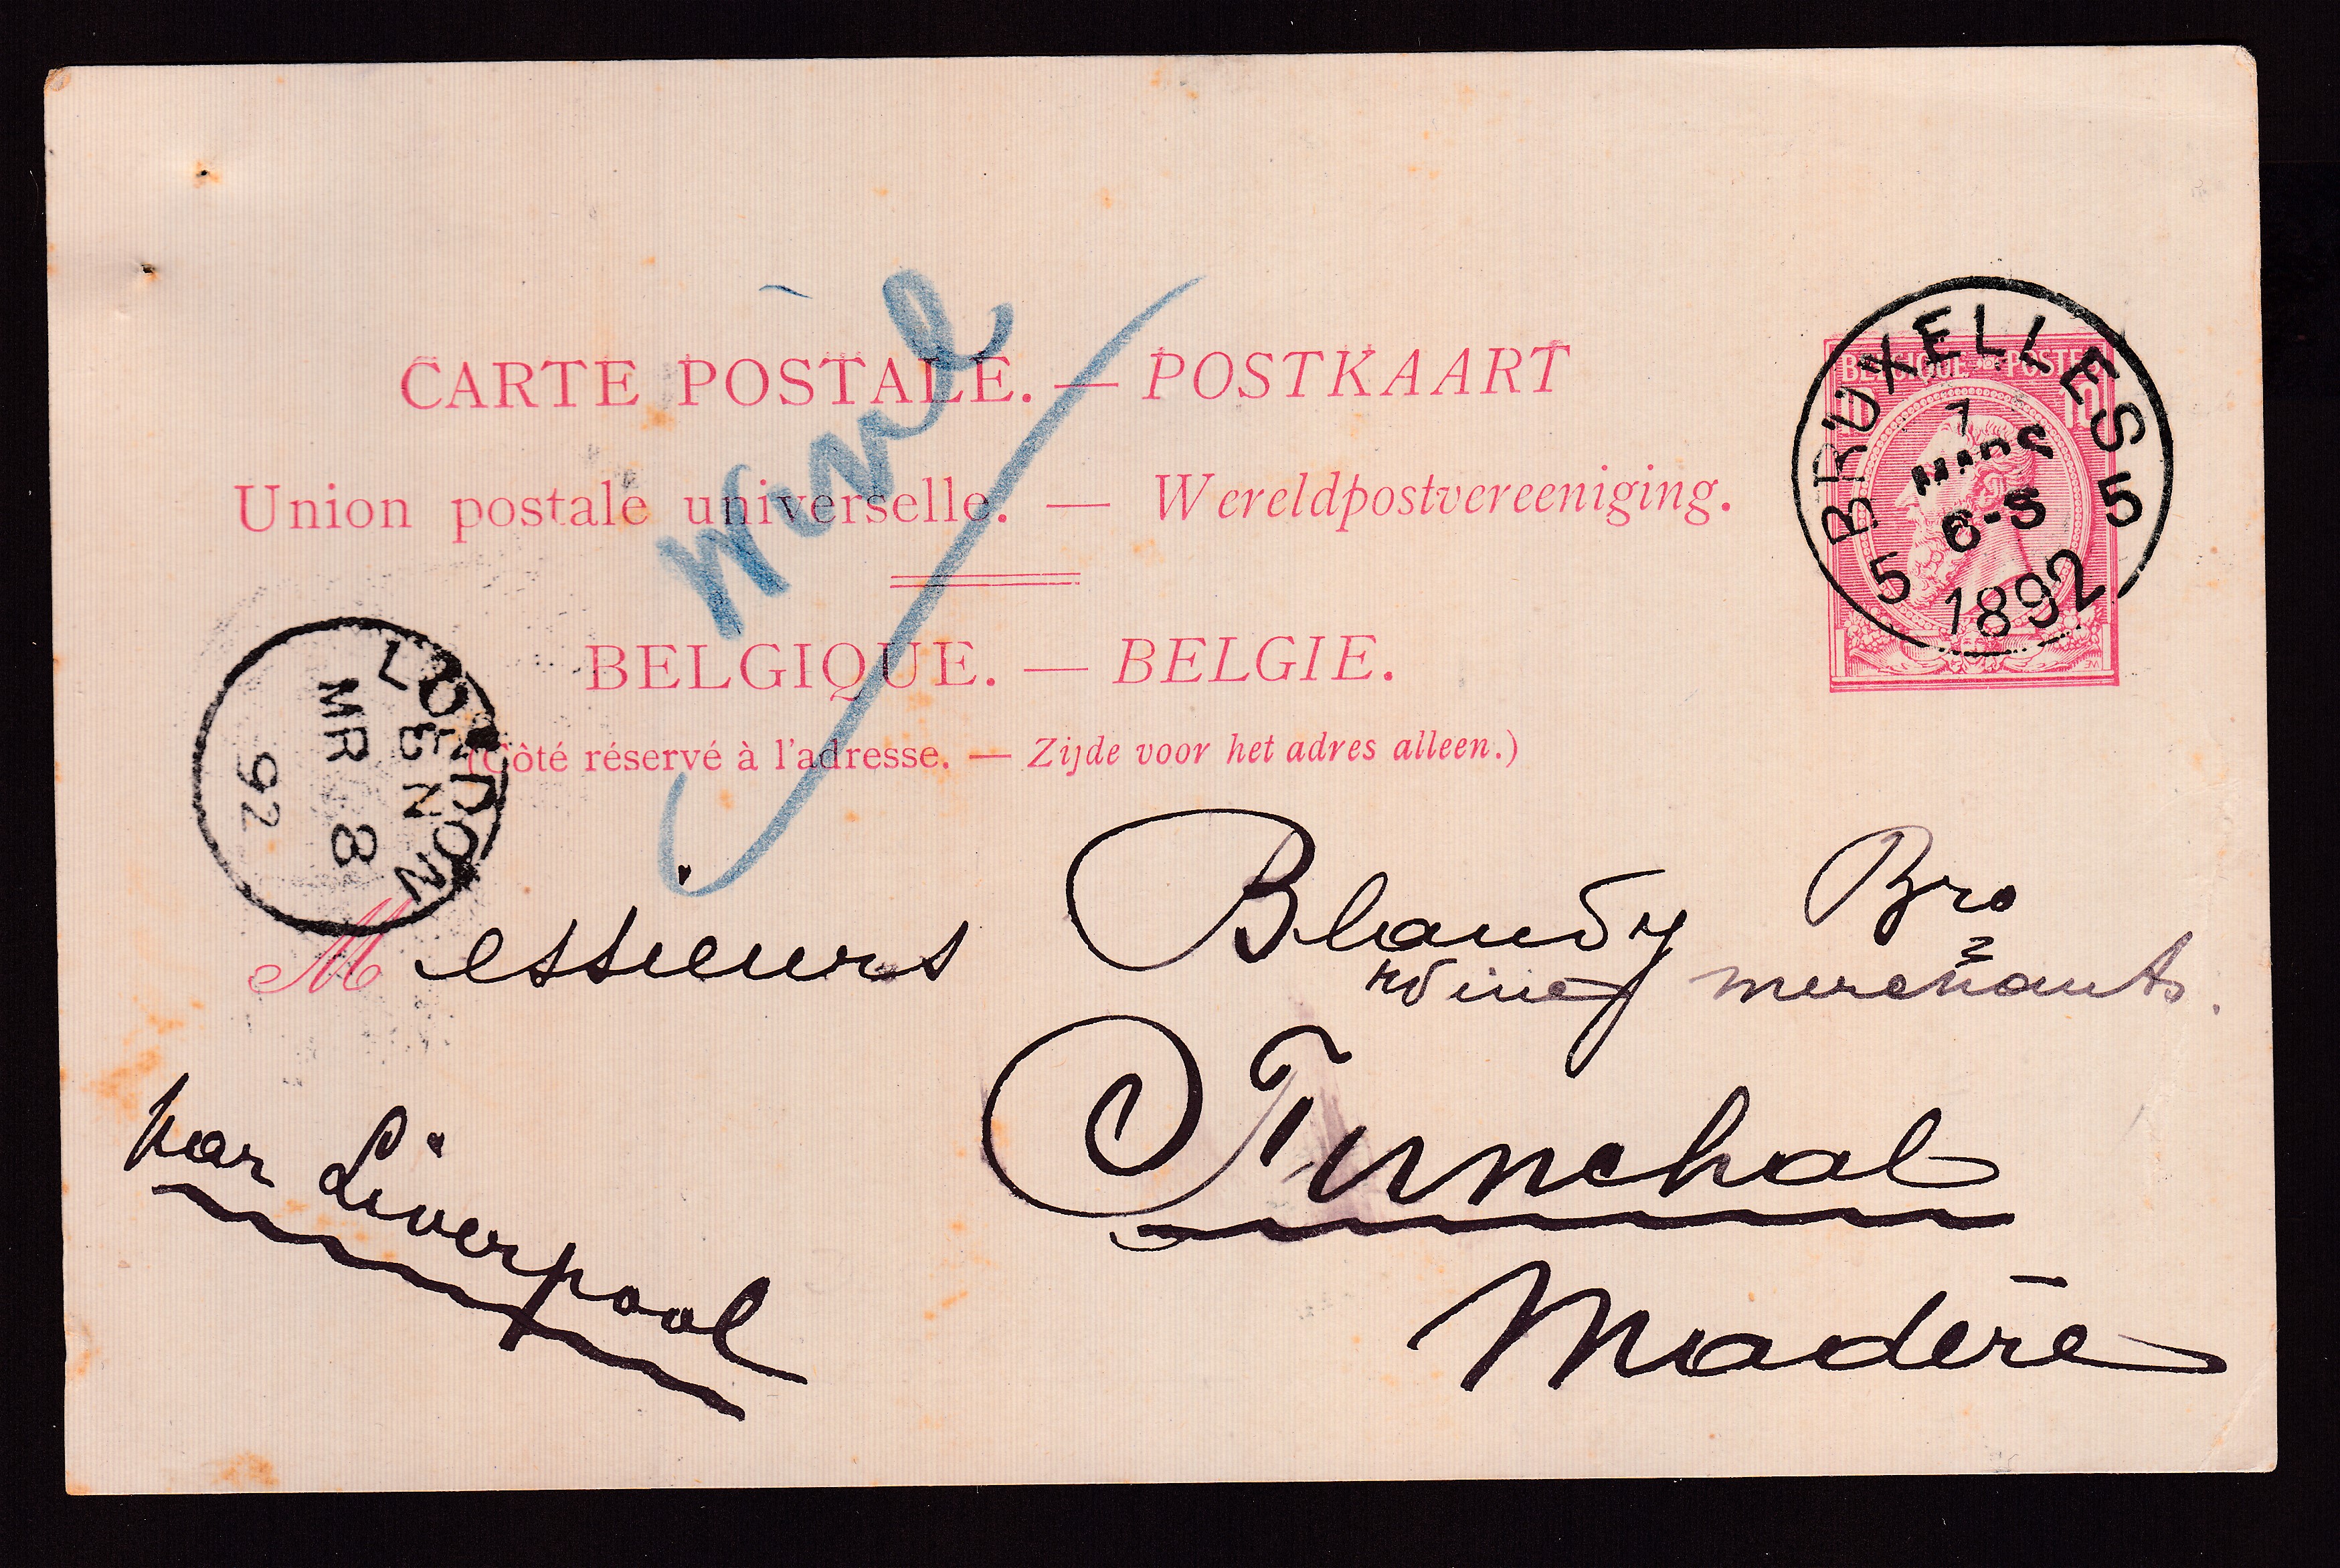 CARTE POSTALE. — POSTKAART
Union postale universelle. — Wereldpostvereeniging.
BELGIQUE. — BELGIE.
(Côté réservé à l'adresse. — Zijde voor het adres alleen.)
Wine
BELGIQUE POSTES
10 10
5 BRUXELLES 5
7
MARS
6-S
1892
LONDON
EN
MR 8
92
Messieurs Blandy Bro
wine merchants.
Funchal
Madère
par Liverpool